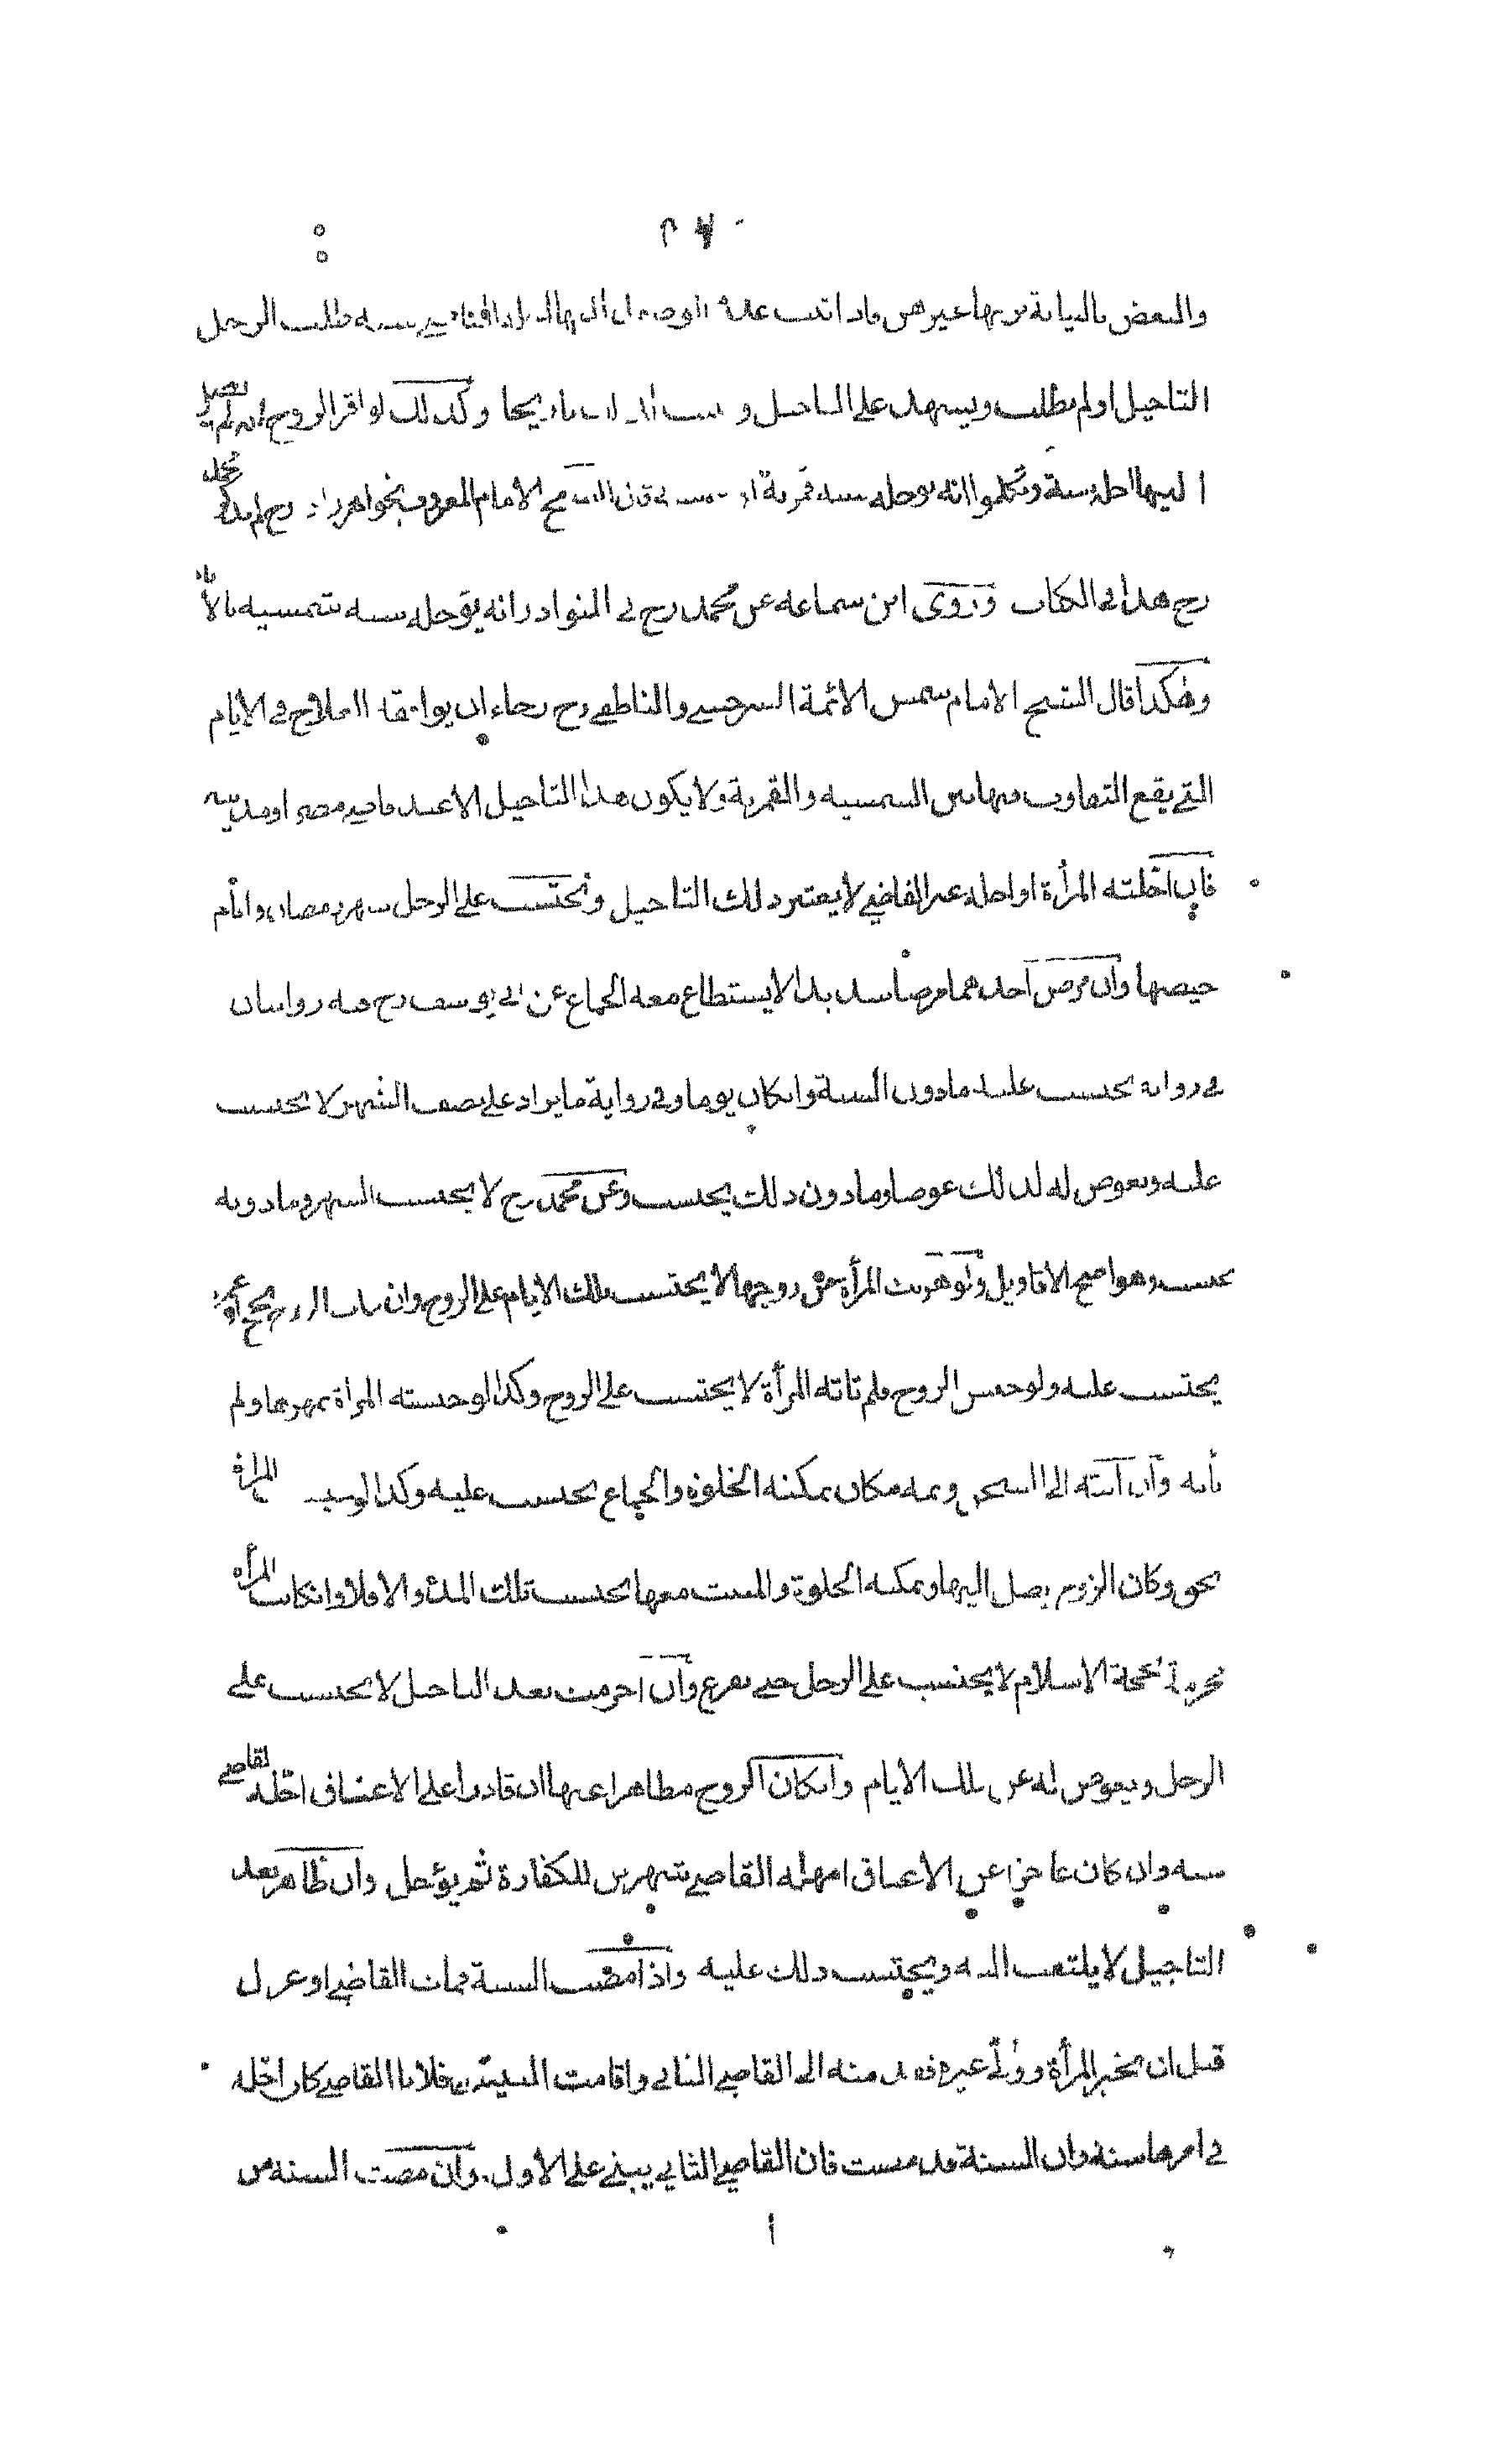 والبعض بالبيانة يريها غيرهن فاذا ثبت عدم الوصول اليها طلب الرجل
التاجيل او لم يطلب ويشهد على التاجيل و تاريخا وكذلك لو اقر الزوج انه لم يصل
اليها اجله سنة وتكلموا انه يؤجله سنه قمرية او شمسية قال الشيخ الامام المعروف بخواهرزاده رح لم يذكر محمد
رح هذا في الكتاب وروى ابن سماعه عن محمد رح في النوادر انه يؤجله سنه شمسيه بالايام
وهكذا قال الشيخ الامام شمس الائمة السرخسي والناطفي رح رجاء ان يوافقا العلاج في الايام
التي يقع التفاوت فيها بين الشمسيه والقمرية ولا يكون هذا التاجيل الا عند قاضي مصر او مدينه
فان اجلته المرأة او اجله غير القاضي لا يعتبر ذلك التاجيل ويحتسب على الرجل شهر رمضان وايام
حيضها وان مرض احدهما مرضا شديدا لا يستطاع معه الجماع عن ابي يوسف رح فيه روايتان
في رواية يحتسب عليه مادون السنة وان كان يوما وفي رواية ما يزاد على نصف الشهر لا يحتسب
عليه ويعوض له لذلك عوضا وما دون ذلك يحتسب وعن محمد رح لا يحتسب الشهر وما دونه
يحتسب وهو اصح الاقاويل ولو هربت المرأة من زوجها لا يحتسب تلك الايام على الزوج وان
يحتسب عليه ولو حبس الزوج فلم تاته المرأة لا يحتسب على الزوج وكذا لو حبسته المراة بمهرها ولم
تاته وان اتته الى السجن وثمه مكان يمكنه الخلوة والجماع يحتسب عليه وكذا لو حبست المرأة
بحق وكان الزوج يصل اليها ويمكنه الخلوة والمبيت معها يحتسب تلك المدة والا فلا وان كانت المرأة
محرمة بحجة الاسلام لا يحتسب على الرجل حتى تفرغ وان احرمت بعد التاجيل لا يحتسب على
الرجل ويعوض له عن تلك الايام وان كان الزوج مظاهرا عنها ان قادرا على الاعتاق اجله القاضي
سنه وان كان عاجزا عن الاعتاق امهله القاضي شهرين للكفارة ثم يؤجل وان ظاهر بعد
التاجيل لا يلتفت اليه ويحتسب ذلك عليه واذا مضت السنة فمات القاضي او عزل
قبل ان يخير المرأة وولي غيره منه الى القاضي الثاني واقامت البينة ان فلانا القاضي كان اجله
في امرها سنة وان السنة قد مضت فان القاضي الثاني يبني على الاول وان مضت السنة من